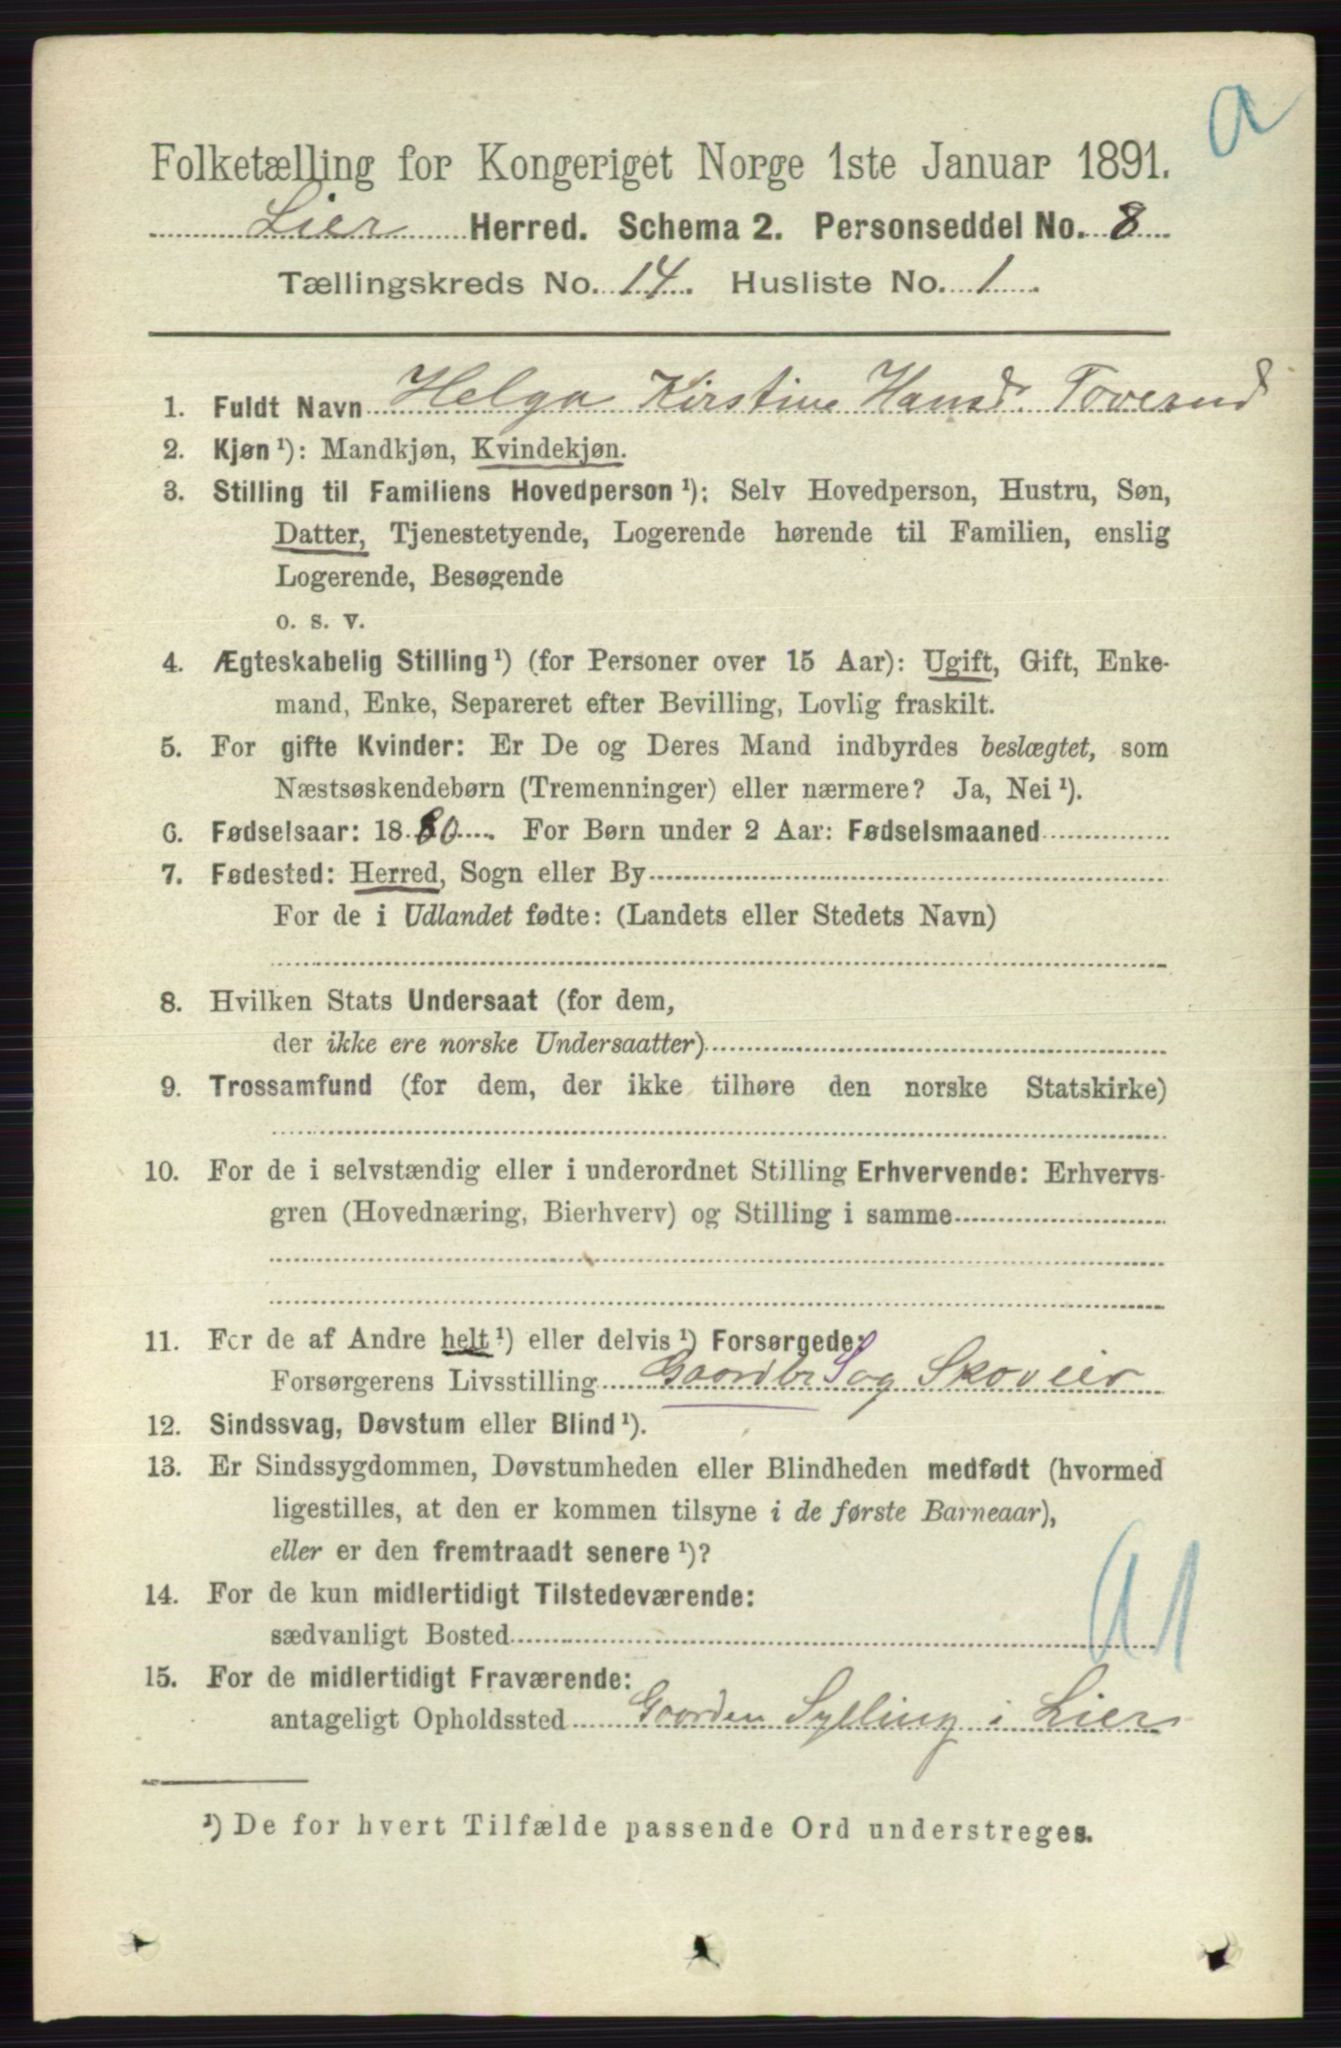 a
Folketælling for Kongeriget Norge 1ste Januar 1891.
Lier Herred. Schema 2. Personseddel No. 8
Tællingskreds No. 14. Husliste No. 1
1. Fuldt Navn Helga Kirstine Hansd. Toverud
2. Kjøn ¹): Mandkjøn, Kvindekjøn.
3. Stilling til Familiens Hovedperson ¹): Selv Hovedperson, Hustru, Søn,
Datter, Tjenestetyende, Logerende hørende til Familien, enslig
Logerende, Besøgende
o. s. v.
4. Ægteskabelig Stilling ¹) (for Personer over 15 Aar): Ugift, Gift, Enke-
mand, Enke, Separeret efter Bevilling, Lovlig fraskilt.
5. For gifte Kvinder: Er De og Deres Mand indbyrdes beslægtet, som
Næstsøskendebørn (Tremenninger) eller nærmere? Ja, Nei ¹).
6. Fødselsaar: 1880. For Børn under 2 Aar: Fødselsmaaned
7. Fødested: Herred, Sogn eller By
For de i Udlandet fødte: (Landets eller Stedets Navn)
8. Hvilken Stats Undersaat (for dem,
der ikke ere norske Undersaatter)
9. Trossamfund (for dem, der ikke tilhøre den norske Statskirke)
10. For de i selvstændig eller i underordnet Stilling Erhvervende: Erhvervs-
gren (Hovednæring, Bierhverv) og Stilling i samme
11. For de af Andre helt ¹) eller delvis ¹) Forsørgede:
Forsørgerens Livsstilling Gaardbr S og Skoveier
12. Sindssvag, Døvstum eller Blind ¹).
13. Er Sindssygdommen, Døvstumheden eller Blindheden medfødt (hvormed
ligestilles, at den er kommen tilsyne i de første Barneaar),
eller er den fremtraadt senere ¹)?
14. For de kun midlertidigt Tilstedeværende:
sædvanligt Bosted
15. For de midlertidigt Fraværende:
antageligt Opholdssted Gaarden Sylling i Lier
¹) De for hvert Tilfælde passende Ord understreges.